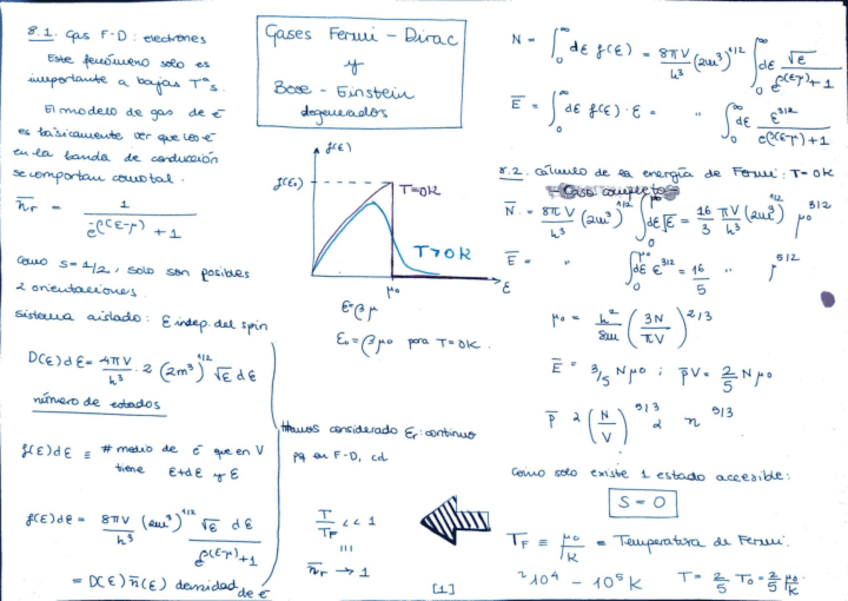 Gases Fermi - Dirac
y
Bose - Einstein
degenerados
8.1. Gas F-D: electrones
Este fenómeno solo es
importante a bajas Tªs.
El modelo de gas de e̅
es básicamente ver que los e̅
en la banda de conducción
se comportan como tal.
n̅r = 1 / e^β(ε-μ) + 1
Como S=1/2, solo son posibles
2 orientaciones.
Sistema aislado: ε indep. del spin
D(ε)dε = 4πV/h³ · 2 (2m³)^1/2 √ε dε
número de estados
f(ε)dε ≡ # medio de e̅ que en V
tiene ε+dε y ε
f(ε)dε = 8πV/h³ (2m³)^1/2 √ε dε / e^β(ε-μ)+1
= D(ε) n̅(ε) densidad de e̅
f(ε)
f(ε₀)
T=0K
T>0K
μ₀
ε
ε=βμ
ε₀=βμ₀ para T=0K.
Hemos considerado εr: continuo
pq en F-D, cd
T/TF << 1
n̅r → 1
[1]
N = ∫₀^∞ dε f(ε) = 8πV/h³ (2m³)^1/2 ∫₀^∞ dε √ε / e^β(ε-μ)+1
E̅ = ∫₀^∞ dε f(ε)·ε = " ∫₀^∞ dε ε^3/2 / e^β(ε-μ)+1
8.2. Cálculo de la energía de Fermi: T=0K
- Caso completo -
N̅ = 8πV/h³ (2m³)^1/2 ∫₀^μ₀ dε √ε = 16/3 πV/h³ (2m³)^1/2 μ₀^3/2
E̅ = " ∫₀^μ₀ dε ε^3/2 = 16/5 " μ^5/2
μ₀ = h²/8m (3N/πV)^2/3
E̅ = 3/5 Nμ₀ ; p̅V = 2/5 Nμ₀
p̅ α (N/V)^5/3 α n^5/3
Como solo existe 1 estado accesible:
S = 0
TF ≡ μ₀/k = Temperatura de Fermi.
~10⁴ - 10⁵ K T = 2/5 T₀ = 2/5 μ₀/k